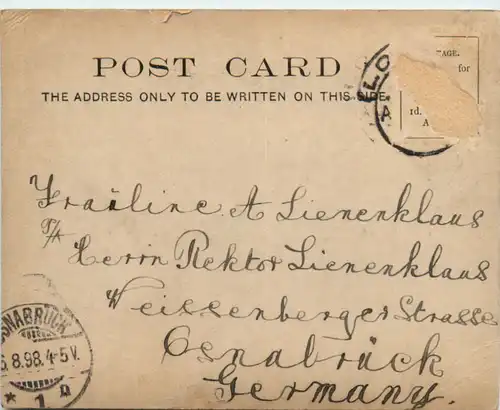 POST CARD
THE ADDRESS ONLY TO BE WRITTEN ON THIS SIDE.
AGE.
for
1d.
A
LO
A
Fraüline A Lienenklaus
P/A
Herrn Rektor Lienenklaus
Weissenberger Strasse
Osnabrück
Germany.
OSNABRÜCK
6.8.98.4-5V.
* 1 n